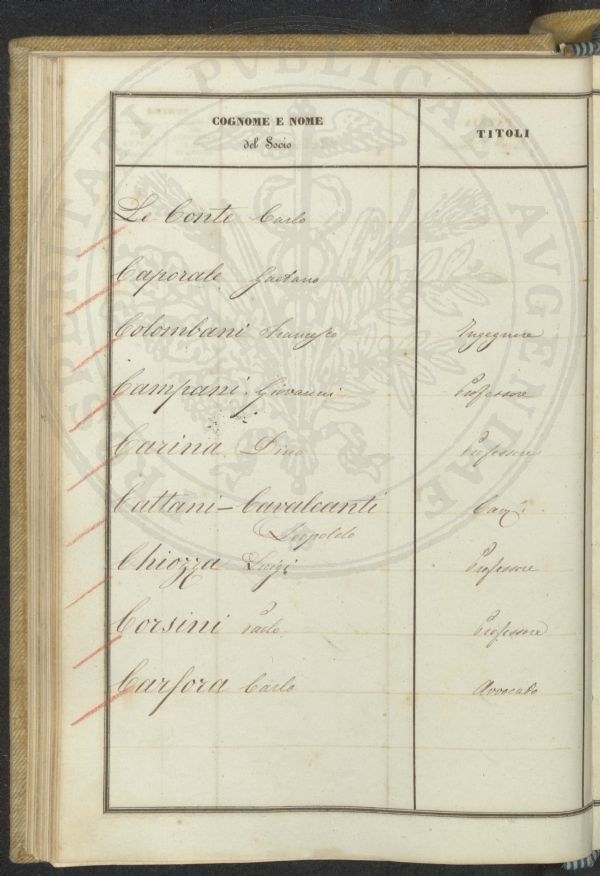 COGNOME E NOME
del Socio
TITOLI
Le Conte Carlo
Caporale Gaetano
Colombani Francesco Ingegnere
Campani Giovanni Professore
Carina Dino Professore
Cattani-Cavalcanti Cav.
Leopoldo
Chiozza Luigi Professore
Corsini Paolo Professore
Carfora Carlo Avvocato
PROSPERITATI PVBLICAE AVGENDAE